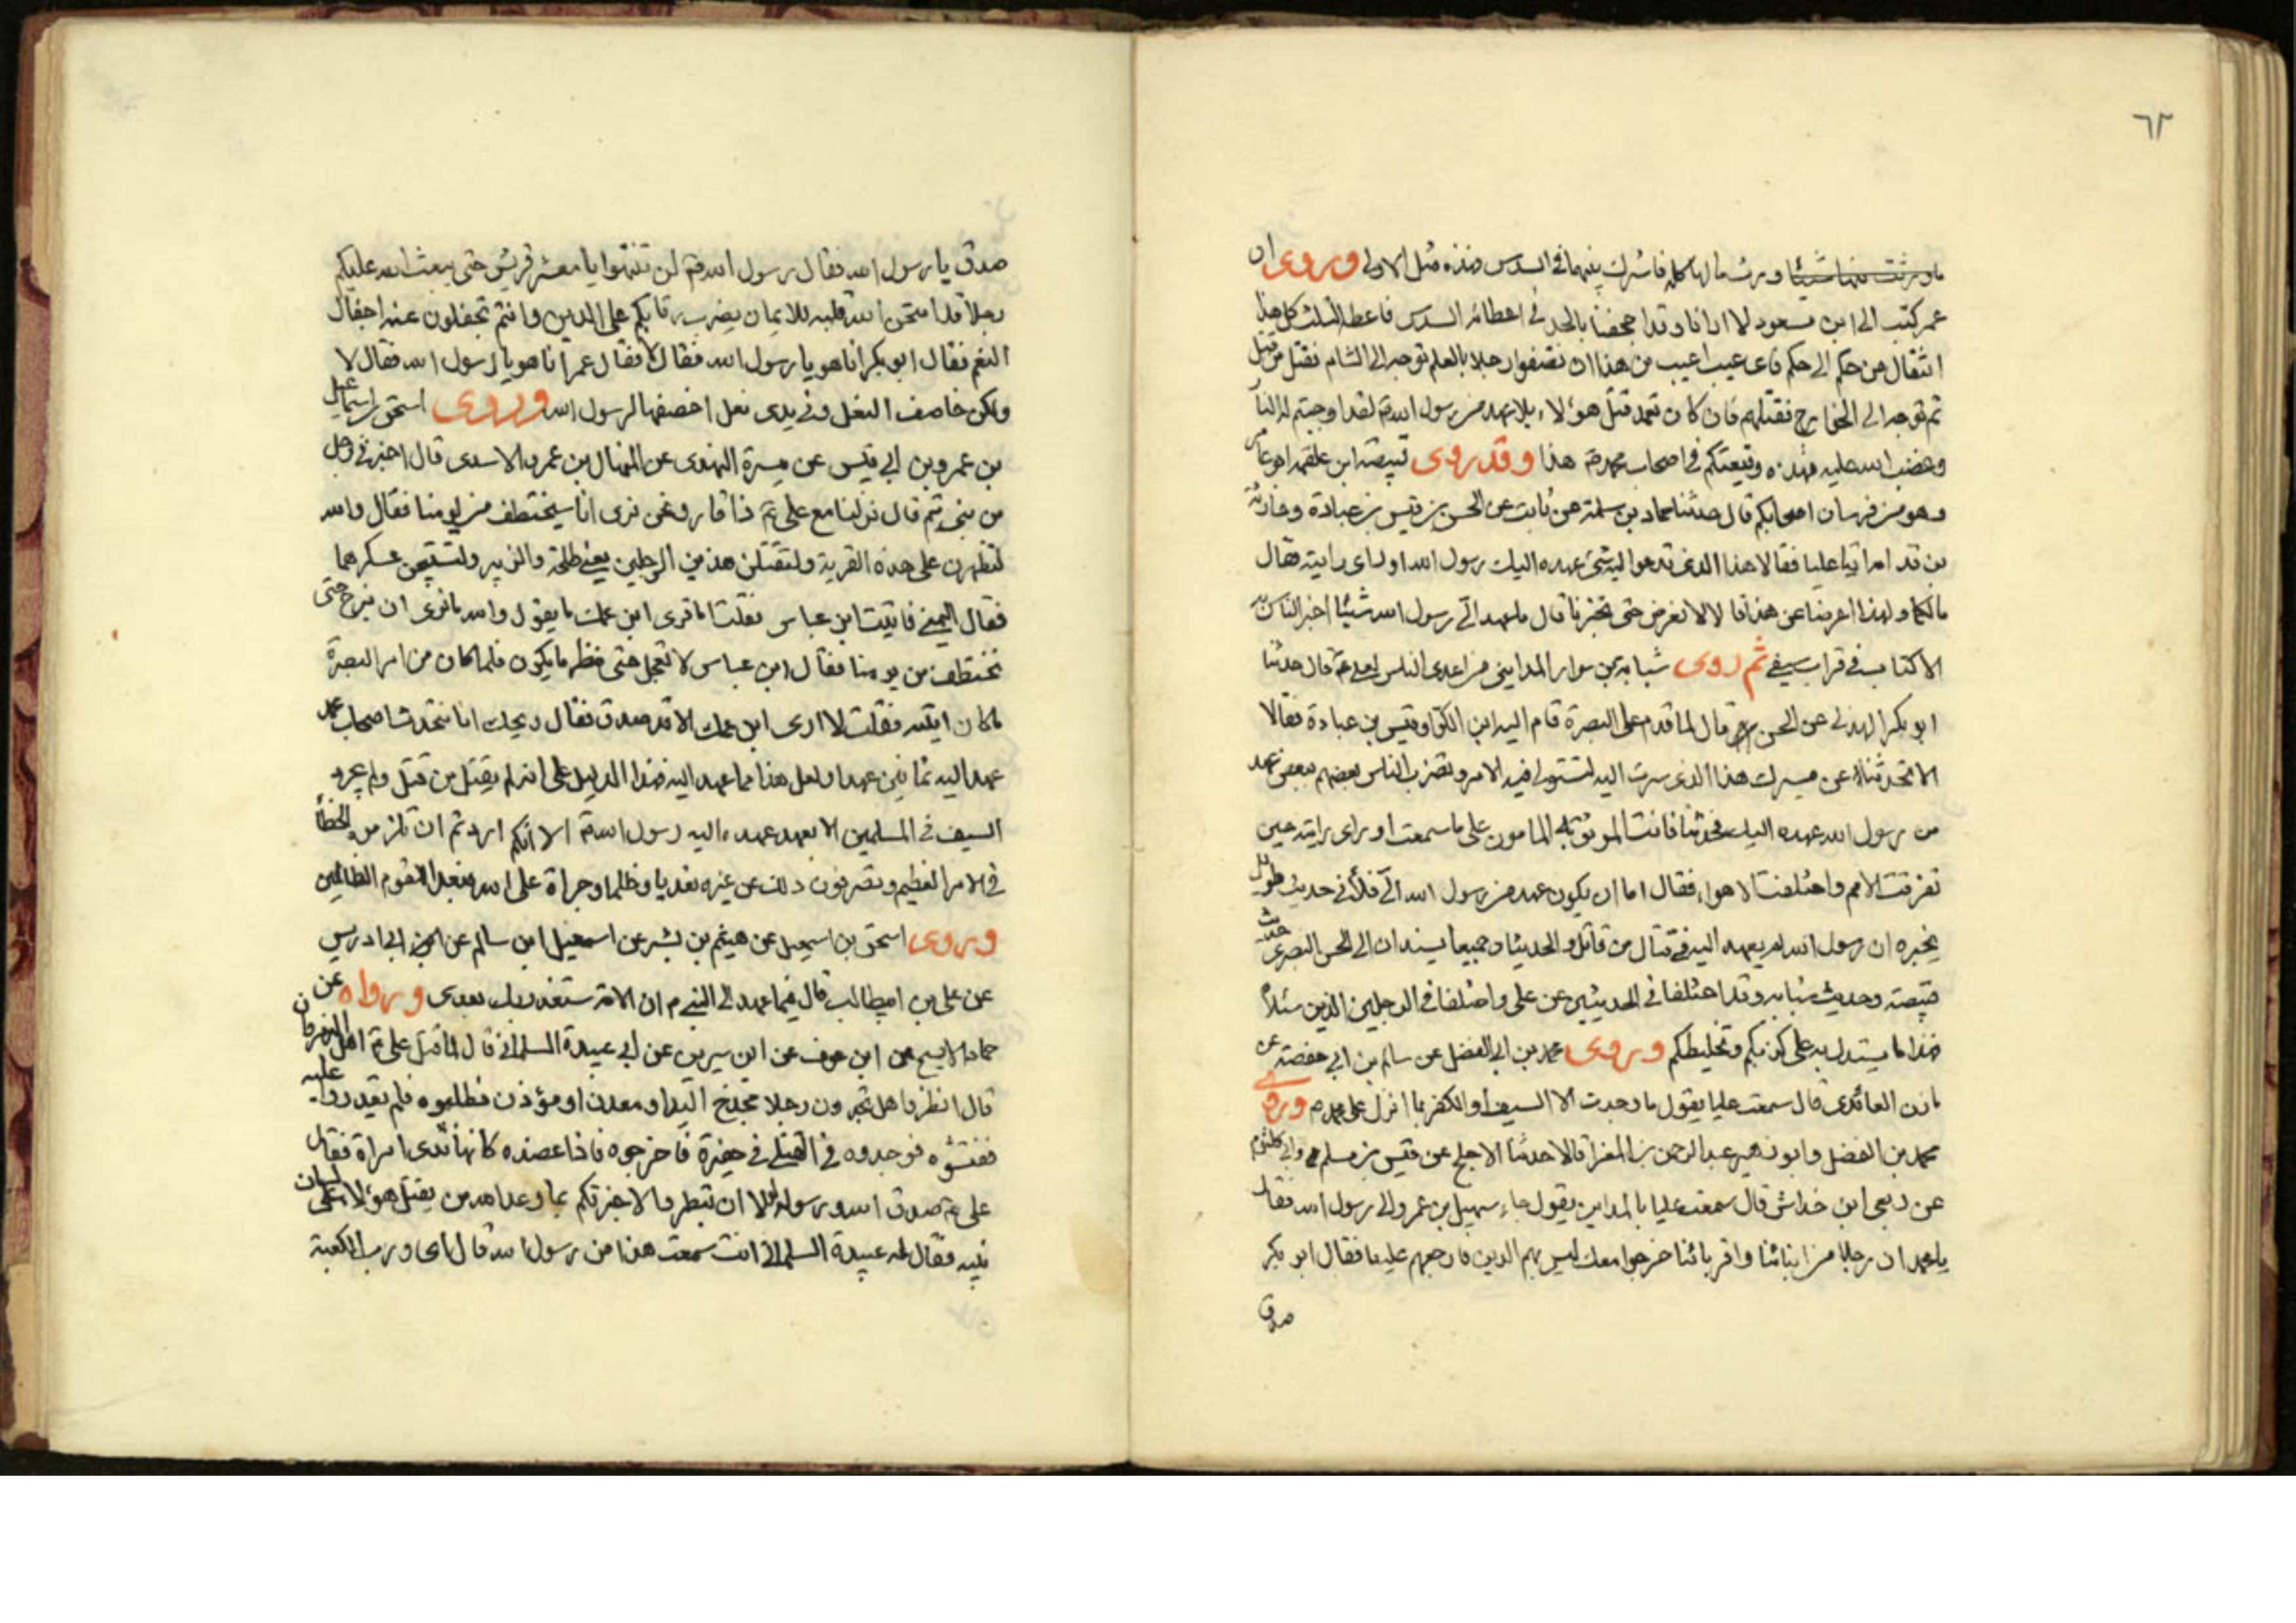 ٦٢
ما ورثت منها شيئا وورث مالها كله فاشرك بينهما في السدس فهذه مثل الاولى وروى ان
عمر كتب الى ابن مسعود لا ارانا وقد اجحفنا بالجد في اعطائه السدس فاعطه الثلث كل هذا
انتقال من حكم الى حكم فاى عيب اعيب من هذا ان تصفوا رجلا بالعلم توجه الى الشام فقتل من قتل
ثم توجه الى الخوارج فقتلهم فان كان تعمد قتل هؤلاء بلا عهد من رسول الله لقد اوجبتم له النار
وغضب الله عليه فهذه وقيعتكم في اصحاب محمد هذا وقد روى قبيصة ابن عقبه
وهو من اصحابكم قال حدثنا حماد بن سلمة عن ثابت عن الحسن بن قيس بن عبادة
بن قد اتيا عليا فقالا هذا الذى تدعو اليه شئ عهده اليك رسول الله او راى رايته قال
مالكما ولهذا اعرضا عن هذا قالا لا نعرض حتى تخبرنا قال ما عهد الى رسول الله شيئا اخبر الناس به
الا كتاب في قراب سيفى ثم روى شبابة بن سوار المداينى من اعدى الناس لعلى قال حدثنا
ابو بكر الهذلى عن الحسن قال لما قدم على البصرة قام اليه ابن الكوا وقيس بن عبادة فقالا
الا تحدثنا عن مسيرك هذا الذى سرت اليه لتستولى فيه الامر وتضرب الناس بعضهم ببعض عهد
من رسول الله عهده اليك فحدثنا فانت الموثوق به المامون على ما سمعت او راى رايته حين
تفرقت الامم واختلفت الاهواء فقال اما ان يكون عهد من رسول الله الى فلا في حديث طويل
يخبره ان رسول الله لم يعهد اليه في قتال من قاتل والحديثا وجميعا يسندان الى الحسن البصرى حديث
قبيصة وحديث شبابه وقد اختلفا في الحديثين عن على واختلفا في الرجلين الذين سئلاه
فهذا ما يستدل به على كذبكم وتخليطكم وروى محمد بن ابى الفضل عن سالم بن ابى حفصة عن
مازن العائذى قال سمعت عليا يقول ما وجدت الا السيف او الكفر بما انزل على محمد وروى
محمد بن الفضل وابو زهير عبد الرحمن بن المغرا قالا حدثنا الاجلح عن قيس بن مسلم وابى كلثوم
عن ربعى ابن خداش قال سمعت عليا بالمداين يقول جاء سهيل بن عمرو الى رسول الله فقال
يا محمد ان رجالا من ابنائنا واقربائنا خرجوا معك ليس بهم الدين فارجعهم علينا فقال ابو بكر
صدق
صدق يا رسول الله فقال رسول الله لن تنتهوا يا معشر قريش حتى يبعث الله عليكم
رجلا قد امتحن الله قلبه للايمان يضرب رقابكم على الدين وانتم تجفلون عنه اجفال
النعم فقال ابو بكر انا هو يا رسول الله فقال لا فقال عمر انا هو يا رسول الله فقال لا
ولكن خاصف النعل وفي يدى نعل اخصفها لرسول الله وروى اسحق بن اسماعيل
بن عمرو بن ابى قيس عن ميسرة النهدى عن المنهال بن عمرو الاسدى قال اخبرني رجل
من بنى تميم قال نزلنا مع على ذا قار ونحن نرى انا سيختطف من يومنا فقال والله
لتظهرن على هذه القرية ولتقتلن هذين الرجلين يعنى طلحة والزبير ولتستبيحن عسكرهما
فقال التيمى فاتيت ابن عباس فقلت اما ترى ابن عمك ما يقول والله ما نرى ان نبرح حتى
نختطف من يومنا فقال ابن عباس لا تعجل حتى ننظر ما يكون فلما كان من امر البصرة
ما كان اتيته فقلت لا ارى ابن عمك الا قد صدق فقال ويحك انا نتحدث اصحاب محمد
عهد اليه ثمانين عهدا ولعل هذا مما عهد اليه فهذا الدليل على انه لم يقتل من قتل ولم يجرد
السيف في المسلمين الا بعهد عهده اليه رسول الله الا انكم اردتم ان تلزموه الخطأ
في الامر العظيم وتصرفون ذلك عن غيره تعديا وظلما وجراة على الله فبعدا للقوم الظالمين
وروى اسحق بن اسمعيل عن هيثم بن بشر عن اسمعيل ابن سالم عن ابى ادريس
عن على بن ابيطالب قال فيما عهد الى النبى ان الامة ستغدر بك بعدى ورواه عن
حماد الابح عن ابن عوف عن ابن سيرين عن ابى عبيدة السلمانى قال لما قتل على اهل النهروان
قال انظروا هل تجدون رجلا مخدج اليد او معدن او مؤذن فطلبوه فلم يقدروا عليه
ففتشوه فوجدوه في القتلى في حفرة فاخرجوه فاذا عضده كانها ثدى امراة فقال
على صدق الله ورسوله لولا ان تبطروا لاخبرتكم بما وعد الله من يقتل هؤلاء على لسان
نبيه فقال له عبيدة السلمانى انت سمعت هذا من رسول الله قال اى ورب الكعبة